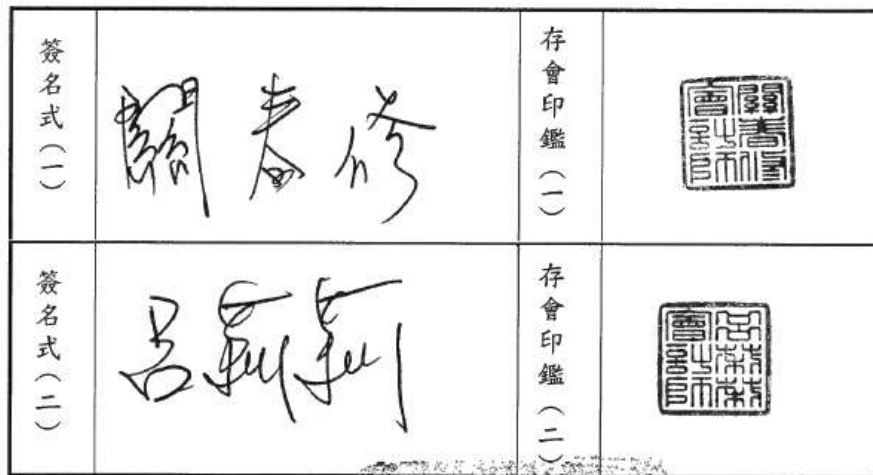 簽名式(一) 關春修 存會印鑑(一) 關春修會計師
簽名式(二) 呂莉莉 存會印鑑(二) 呂莉莉會計師